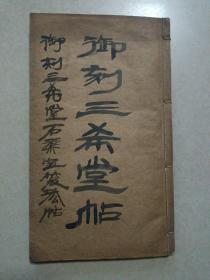 御刻三希堂帖
御刻三希堂石渠宝笈法帖